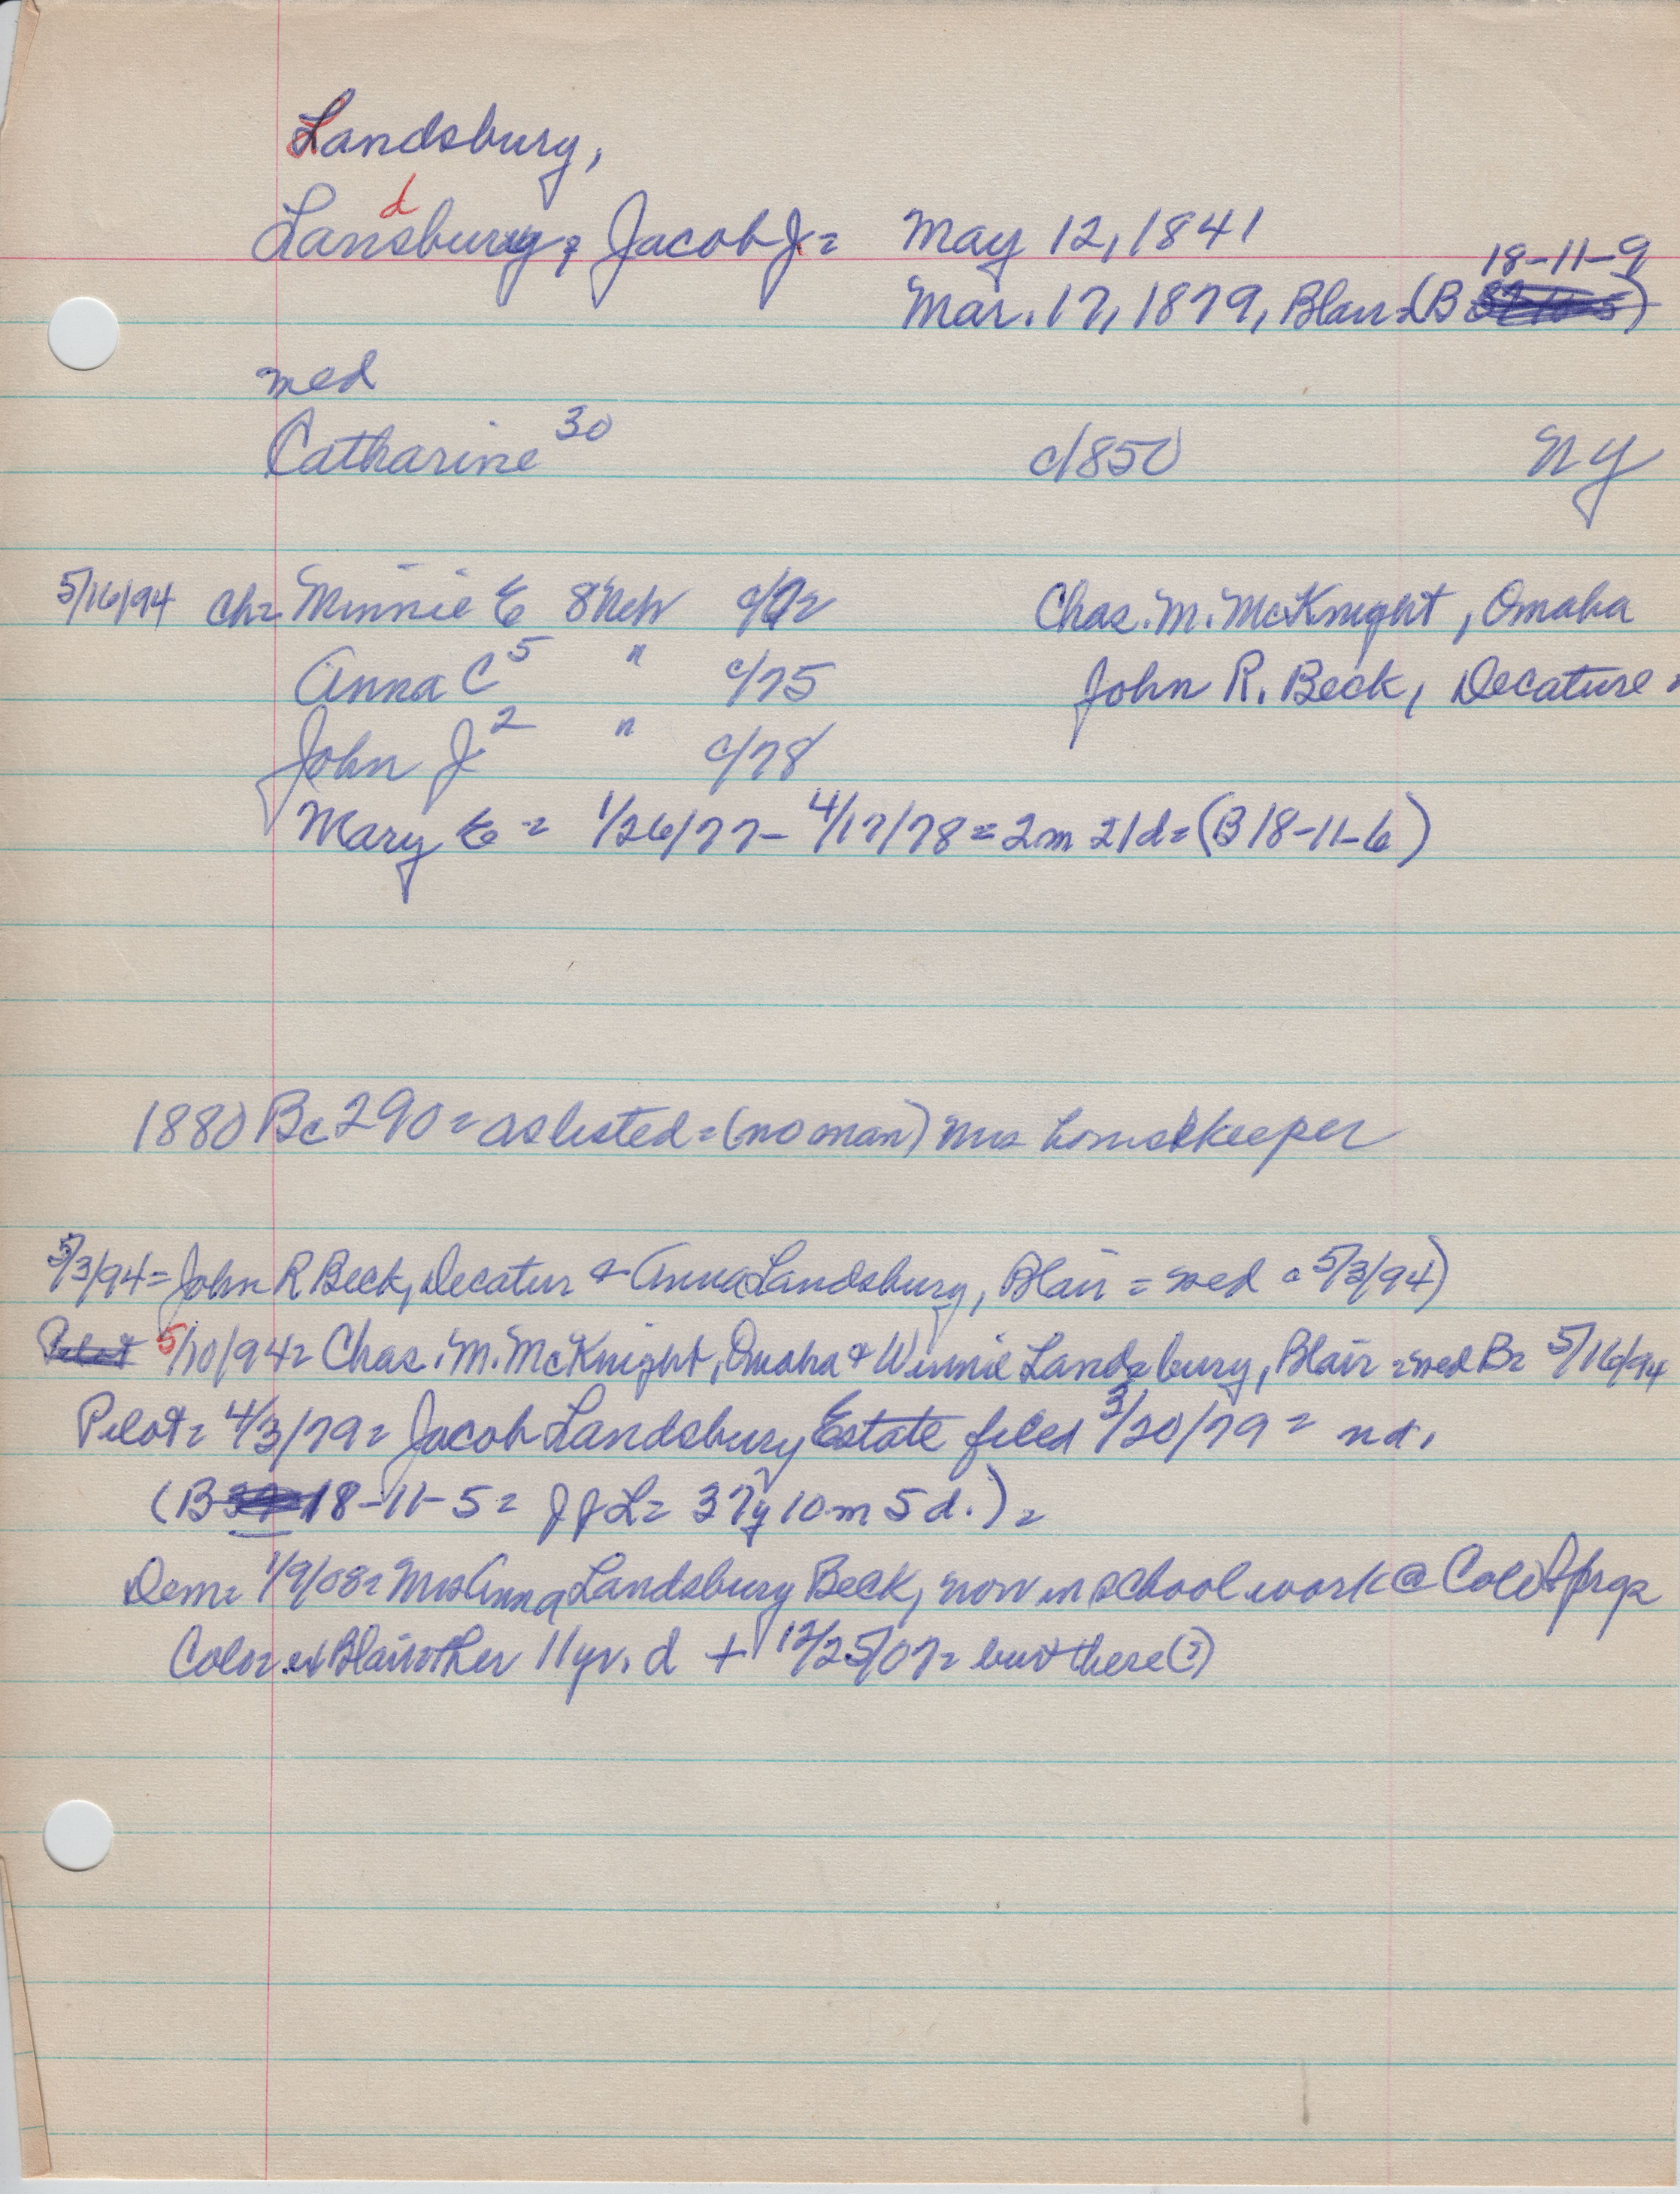 Landsbury,
d
Lansbury, Jacob J= May 12, 1841
18-11-9
Mar. 17, 1879, Blair=(B )
med
Catharine 30 c/1850 NY
5/16/94 Ch= Minnie E 8 Neb c/72 Chas. M. McKnight, Omaha
Anna C 5 " c/75 John R. Beck, Decature
John J 2 " c/78
Mary E = 1/26/77- 4/17/78 = 2m 21d= (B 18-11-6)
1880 Bc 290 = as listed = (no man) Mrs housekeeper
5/3/94= John R Beck, Decatur & Anna Landsbury, Blair = med c 5/3/94)
5/10/94= Chas. M. McKnight, Omaha & Winnie Landsbury, Blair = med B= 5/16/94
Pilot= 4/3/79= Jacob Landsbury Estate filed 3/20/79 = nd.
(B 18-11-5= J J L= 37y 10m 5d.) =
Dem= 1/9/08= Mrs Anna Landsbury Beck, now in school work @ Colo Sprgs
Colo= ex Blairother 11 yr. d + 12/25/07= bur there (?)